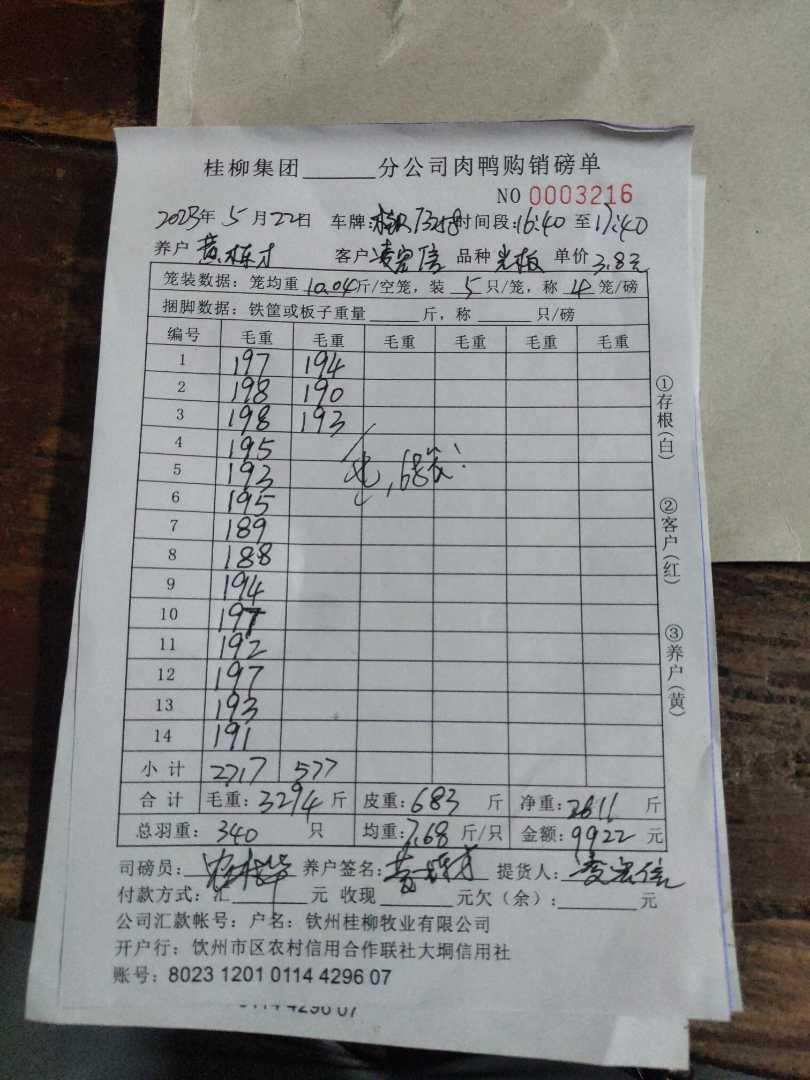 桂柳集团______分公司肉鸭购销磅单
NO 0003216
2023年 5月22日 车牌: 时间段:16:40 至17:40
养户 黄栋才 客户 凌宏信 品种 光板 单价 3.8元
笼装数据:笼均重 10.04斤/空笼,装 5 只/笼,称 4 笼/磅
捆脚数据:铁筐或板子重量______斤,称______只/磅
编号 毛重 毛重 毛重 毛重 毛重 毛重
1 197 194
2 198 190
3 198 193
4 195
5 193
6 195
7 189
8 188
9 194
10 197
11 192
12 197
13 193
14 191
68笼
小计 2717 577
合计 毛重:3294斤 皮重:683斤 净重:2611斤
总羽重:340只 均重:7.68斤/只 金额:9922元
司磅员: 养户签名:黄栋才 提货人:凌宏信
付款方式:汇______元 收现______元欠(余):______元
公司汇款帐号:户名:钦州桂柳牧业有限公司
开户行:钦州市区农村信用合作联社大垌信用社
账号:8023 1201 0114 4296 07
①存根(白)
②客户(红)
③养户(黄)
0114 4296 07